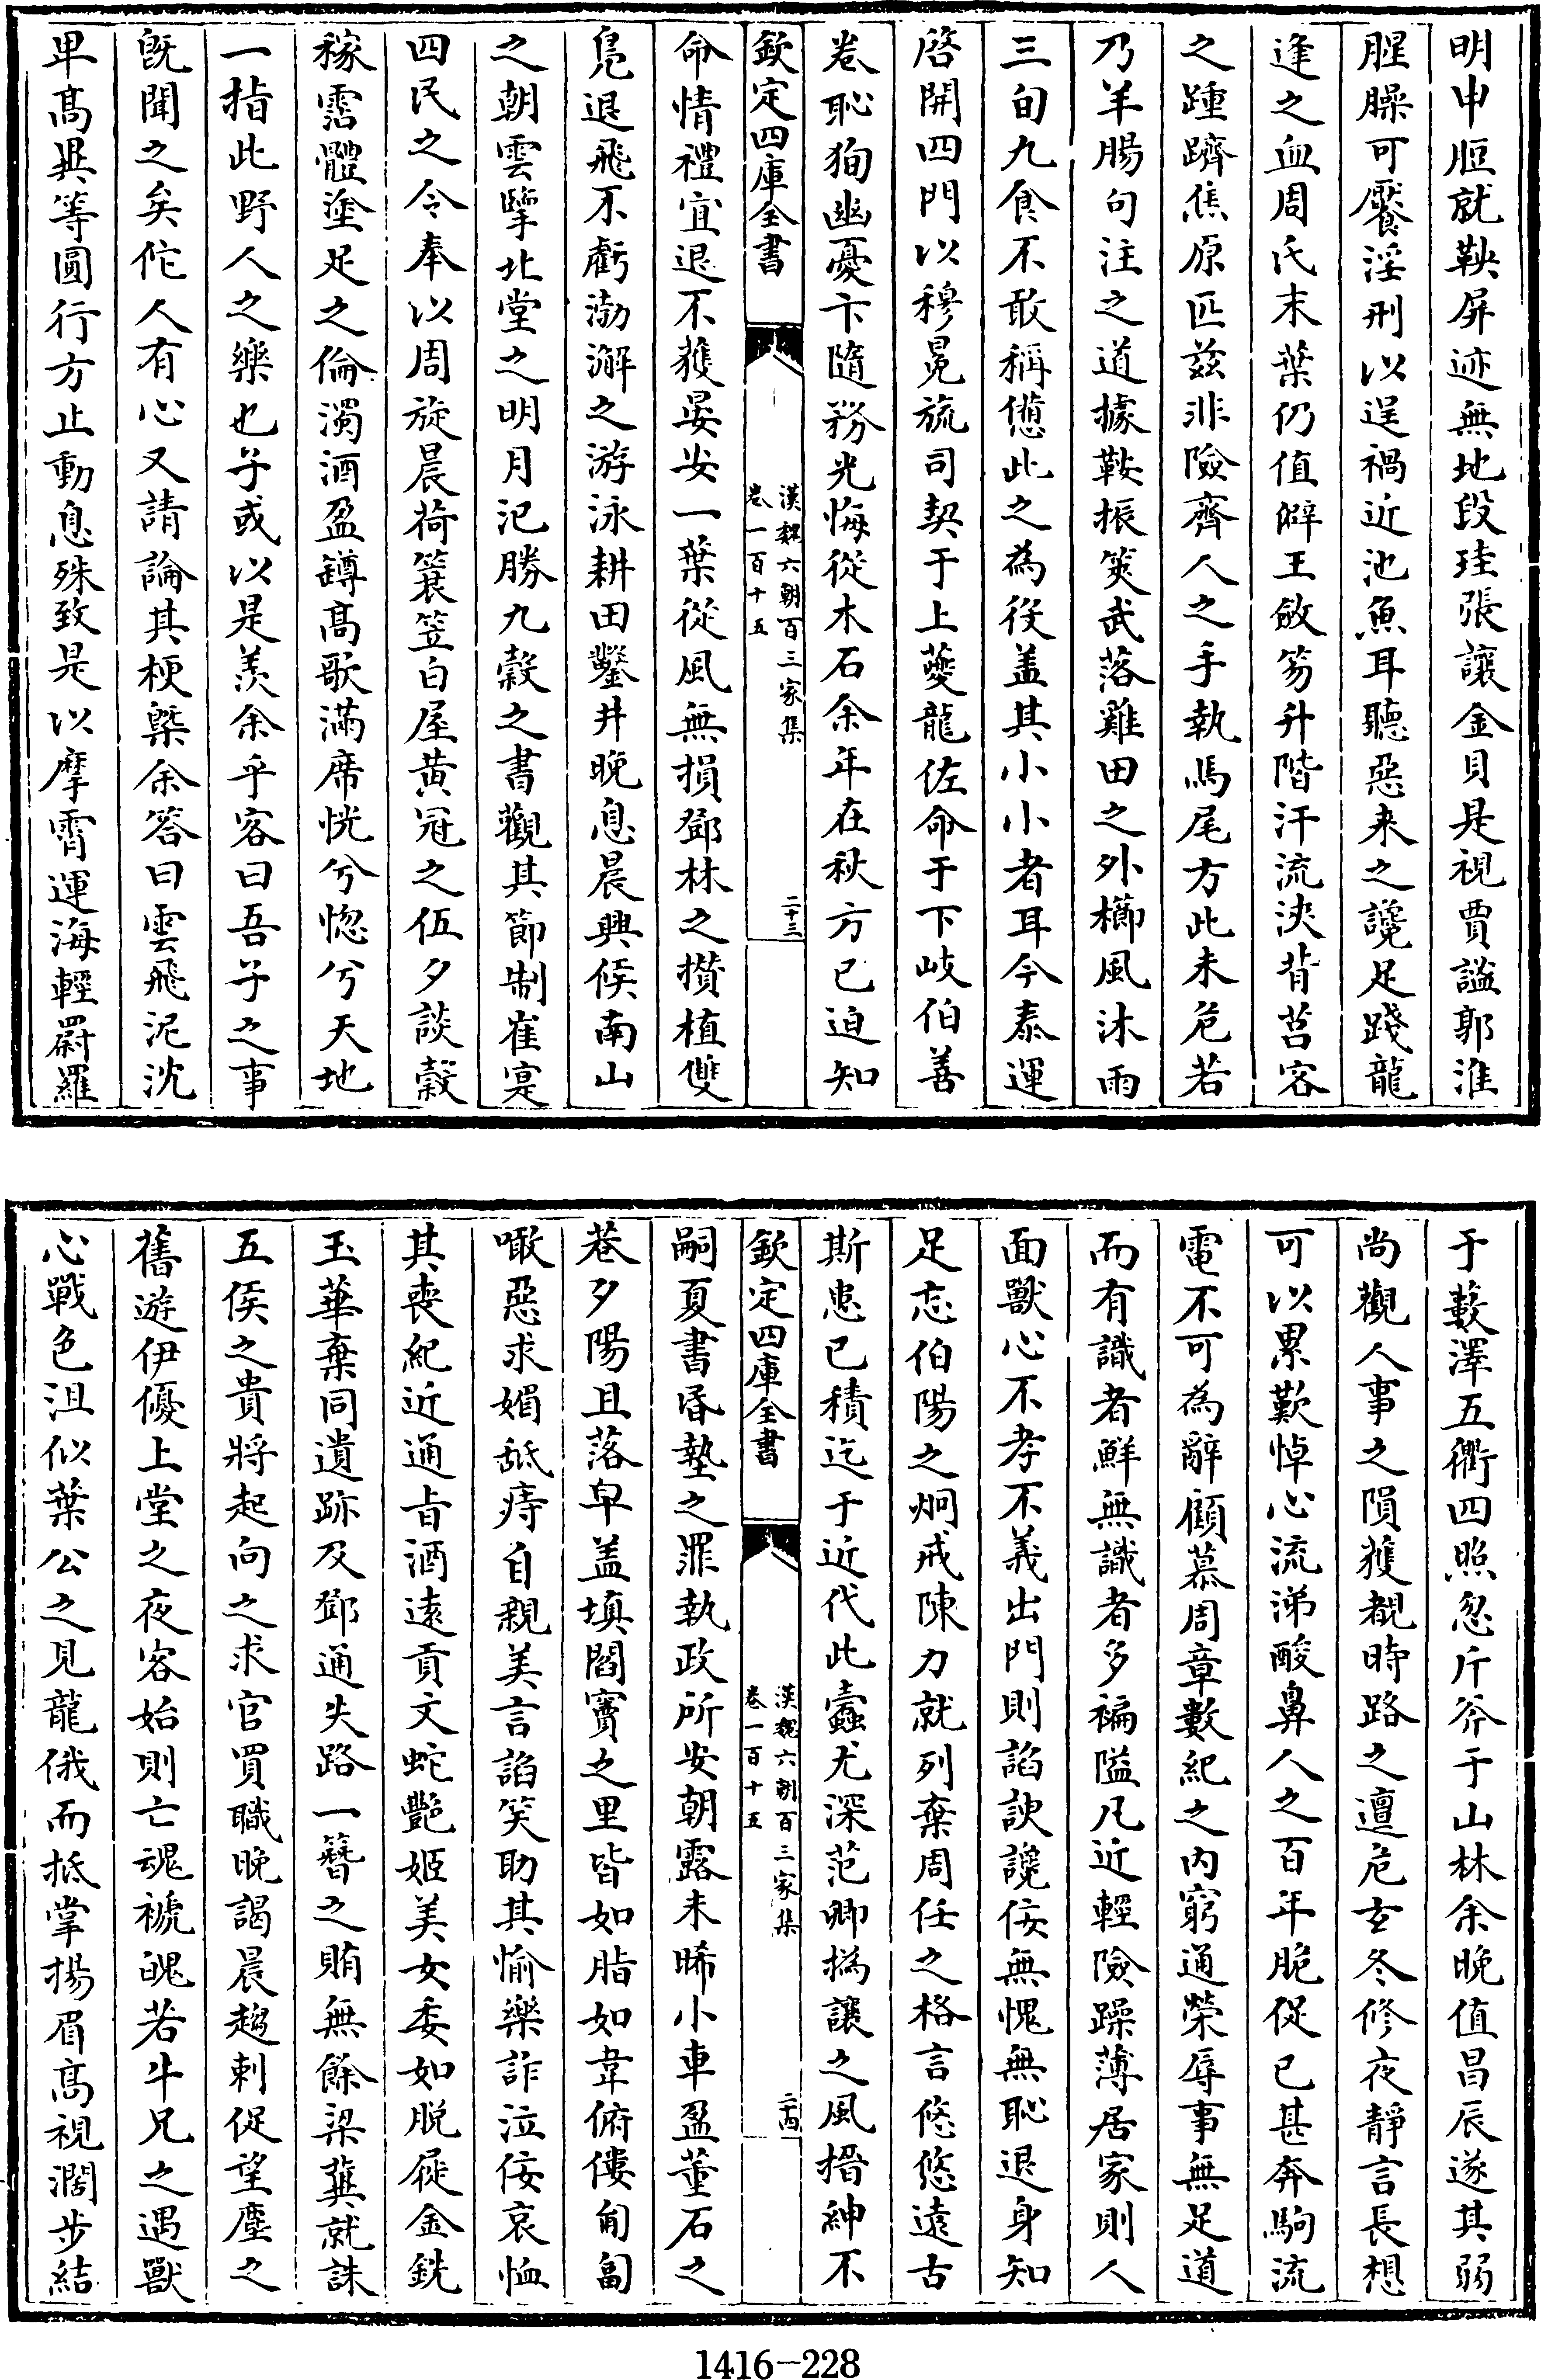 明申脰就鞅屏迹無地段珪張讓金貝是視賈謐郭淮
腥臊可饜淫刑以逞禍近池魚耳聽惡来之讒足踐龍
逢之血周氏末葉仍值僻王斂笏升階汗流浹背莒客
之踵躋焦原匹兹非險齊人之手執馬尾方此未危若
乃羊腸句注之道據鞍振筴武落雞田之外櫛風沐雨
三旬九食不敢稱憊此之為役盖其小小者耳今泰運
啓開四門以穆冕旒司契于上夔龍佐命于下岐伯善
卷恥狥幽憂卞隨務光悔從木石余年在秋方已迫知
欽定四庫全書
漢魏六朝百三家集
卷一百十五
二十三
命情禮宜退不獲晏安一葉從風無損鄧林之攢植雙
鳧退飛不虧渤澥之游泳耕田鑿井晚息晨興候南山
之朝雲擥北堂之明月氾勝九穀之書觀其節制崔寔
四民之令奉以周旋晨荷簑笠白屋黄冠之伍夕談穀
稼霑體塗足之倫濁酒盈罇高歌滿席恍兮惚兮天地
一指此野人之樂也子或以是羨余乎客曰吾子之事
既聞之矣佗人有心又請論其梗槩余答曰雲飛泥沈
卑高異等圓行方止動息殊致是以摩霄運海輕罻羅
于藪澤五衢四照忽斤斧于山林余晚值昌辰遂其弱
尚觀人事之隕獲覩時路之邅危玄冬修夜靜言長想
可以累歎悼心流涕酸鼻人之百年脆促已甚奔駒流
電不可為辭顧慕周章數紀之内窮通榮辱事無足道
而有識者鮮無識者多褊隘凡近輕險躁薄居家則人
面獸心不孝不義出門則諂諛讒佞無愧無恥退身知
足忘伯陽之炯戒陳力就列棄周任之格言悠悠遠古
斯患已積迄于近代此蠹尤深范卿撝讓之風搢紳不
欽定四庫全書
漢魏六朝百三家集
卷一百十五
二十四
嗣夏書昏墊之罪執政所安朝露未晞小車盈董石之
巷夕陽且落皁盖填閻竇之里皆如脂如韋俯僂匍匐
噉惡求媚舐痔自親美言諂笑助其愉樂詐泣佞哀恤
其喪紀近通旨酒遠貢文蛇艷姬美女委如脱屣金銑
玉華棄同遺跡及鄧通失路一簪之賄無餘梁冀就誅
五侯之貴將起向之求官買職晚謁晨趨刺促望塵之
舊遊伊優上堂之夜客始則亡魂褫魄若牛兄之遇獸
心戰色沮似葉公之見龍俄而抵掌揚眉高視濶步結
1416-228